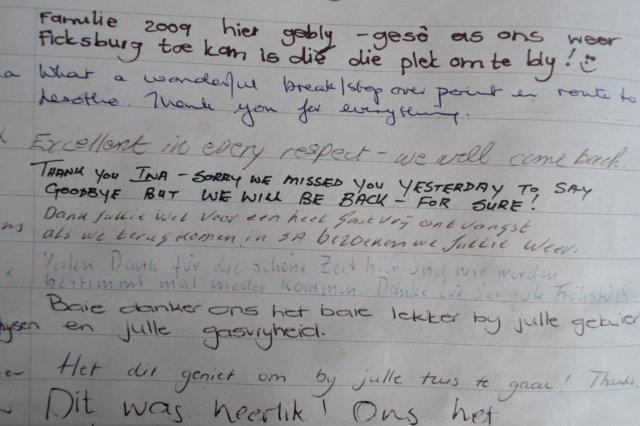 Familie 2009 hier gebly - gesê as ons weer
Ficksburg toe kom is dié die plek om te bly!
a What a wonderful break/stop over point en route to
Lesotho. Thank you for everything.
Excellent in every respect - we will come back.
THANK YOU INA - SORRY WE MISSED YOU YESTERDAY TO SAY
GOODBYE BUT WE WILL BE BACK - FOR SURE!
ns Dank jullie wel voor een heel gastvrij ontvangst
als we terug komen in SA bezoeken we jullie weer.
Vielen Dank für die schöne Zeit hier und wir werden
bestimmt mal wieder kommen. Danke für das gute Frühstück.
Baie danker ons het baie lekker by julle gekuier
hysen en julle gasvryheid.
Het dit geniet om by julle tuis te gaan! Thanks
Dit was heerlik! Ons het